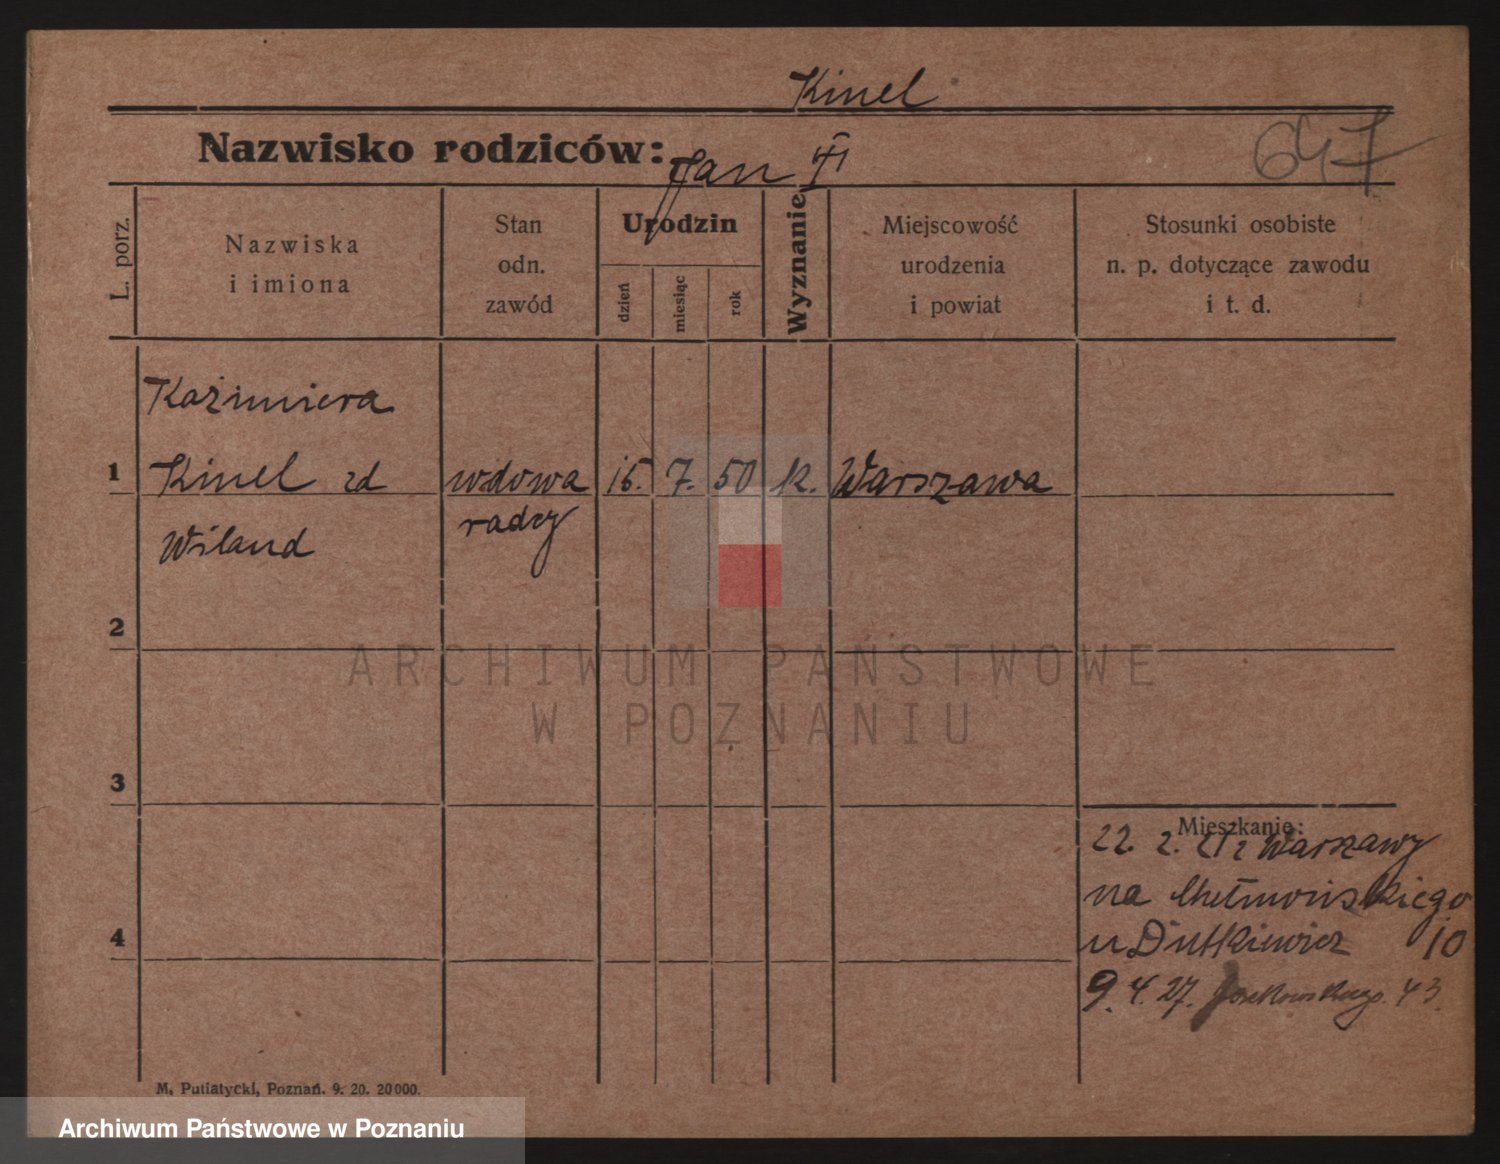 Kinel
Nazwisko rodziców: Jan
647
L. porz.
Nazwiska
i imiona
Stan
odn.
zawód
Urodzin
dzień
miesiąc
rok
Wyznanie
Miejscowość
urodzenia
i powiat
Stosunki osobiste
n. p. dotyczące zawodu
i t. d.
Kazimiera
1 Kinel zd wdowa 15. 7. 50 k. Warszawa
Wiland radcy
2
3
Mieszkanie:
22. 2. 21 z Warszawy
na Chełmońskiego
4 u Dutkiewicz 10
9. 4. 27. 43
M. Putiatycki, Poznań. 9. 20. 20000.
ARCHIWUM PAŃSTWOWE
W POZNANIU
Archiwum Państwowe w Poznaniu